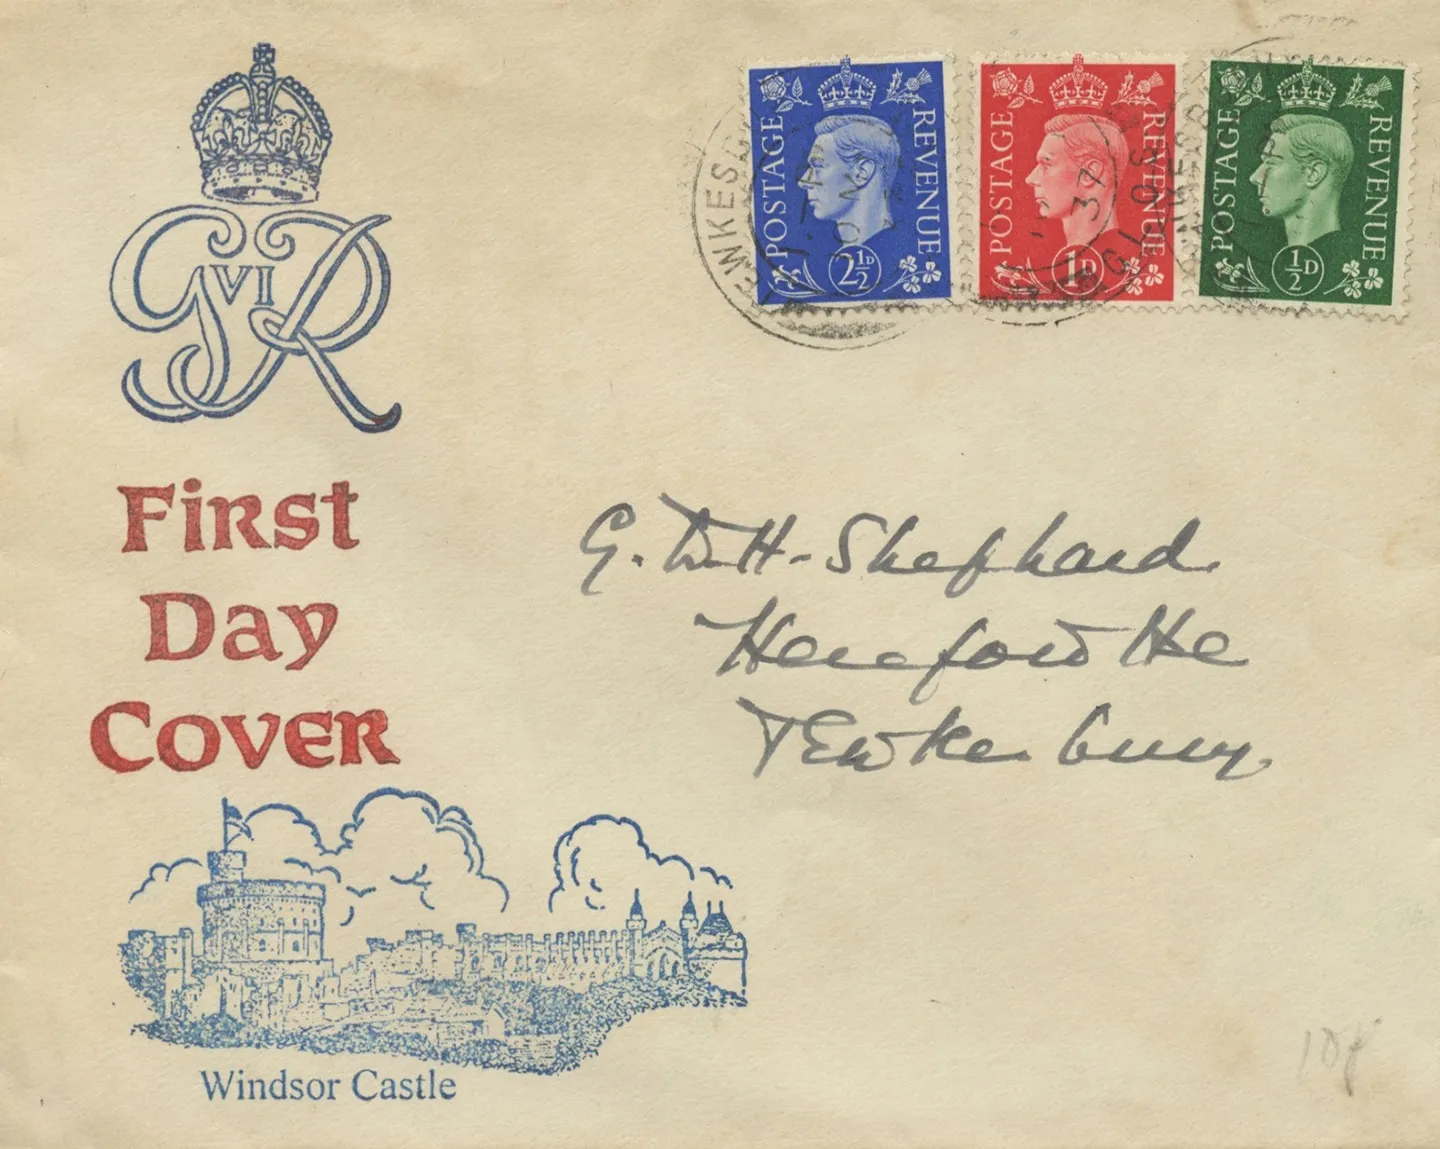 GviR
First
Day
Cover
Windsor Castle
POSTAGE REVENUE
2½D
POSTAGE REVENUE
1D
POSTAGE REVENUE
½D
37
G. D. H. Shephard
Tewkesbury